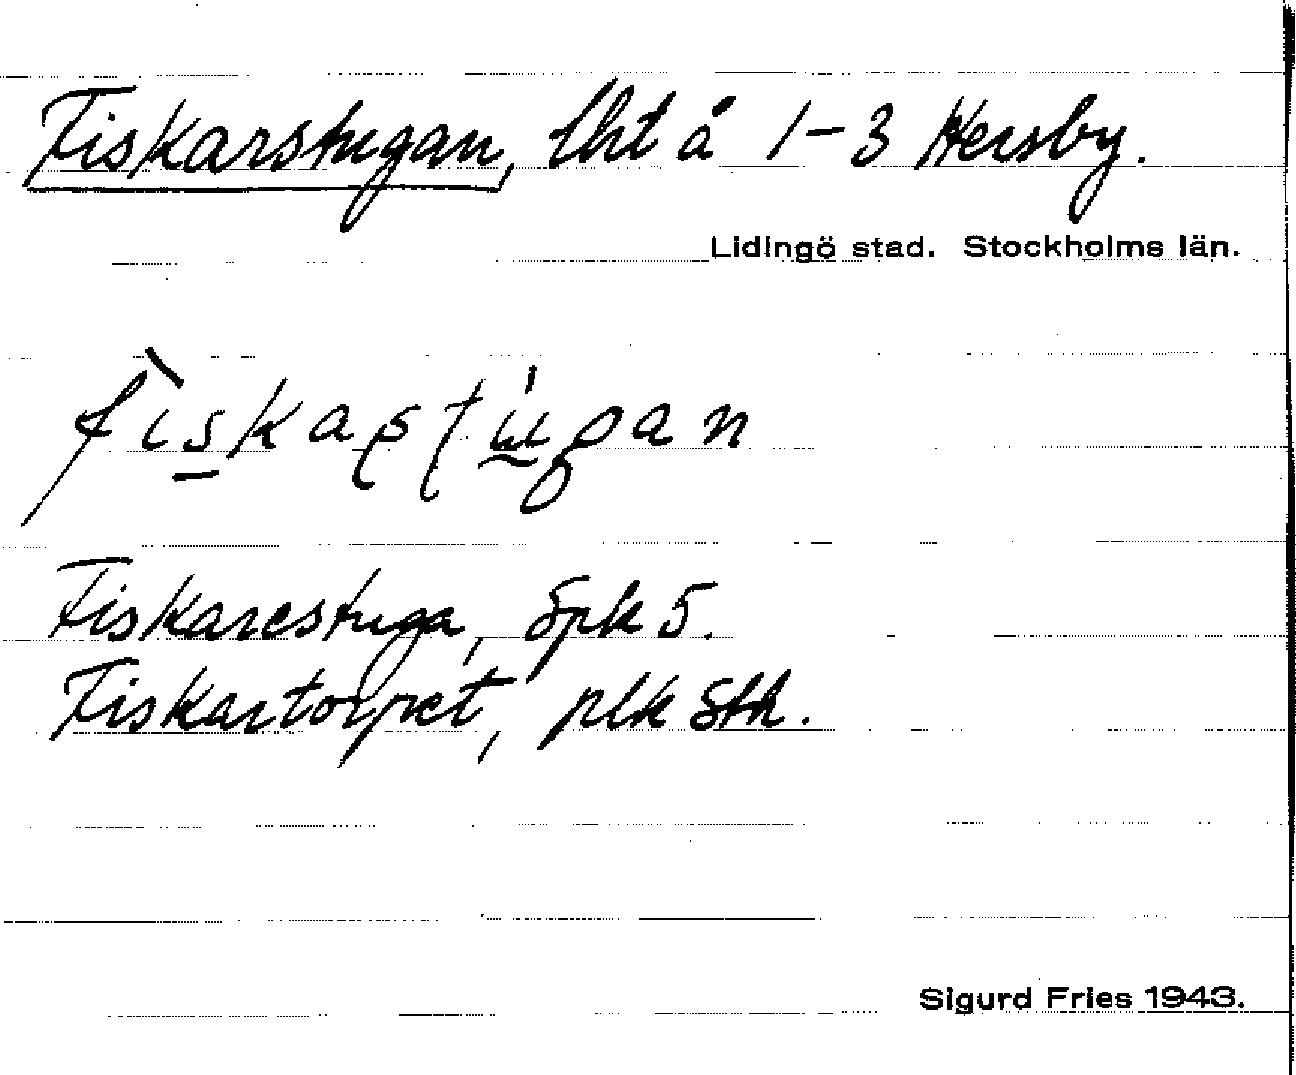 Fiskarstugan, lht å 1-3 Hersby.
Lidingö stad. Stockholms län.
fìskaʂʈúgan
Fiskarestuga, Spk 5.
Fiskartorpet, plk Sth.
Sigurd Fries 1943.